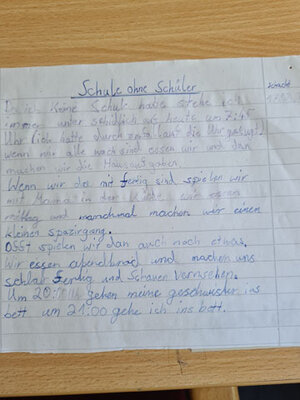 Schule ohne Schüler
Da ich keine Schule habe stehe ich
immer unterschidlich auf heute um
Uhr (ich hatte durch zufall auf die Uhr gekugt)
wenn wir alle wach sind essen wir und dan
machen wir die Hausaufgaben.
Wenn wir des mit fertig sind spielen wir
mit Mama in der wir essen
mittag und manchmal machen wir einen
kleinen spazirgang.
Offt spielen wir dan auch noch etwas,
wir essen abendbrod und machen uns
schlaf fertig und schauen Vernsehen.
Um 20:00 gehen meine geschwister ins
bett um 21:00 gehe ich ins bett.